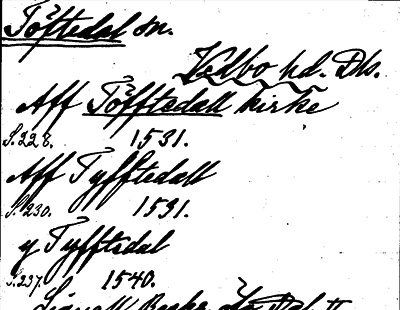 Töftedal sn.
Vedbo hd. Dls.
Aff Töfftedall kirke
S. 228. 1531.
Aff Tyfftedall
S. 230. 1531.
y Tyfftedal
S. 237. 1540.